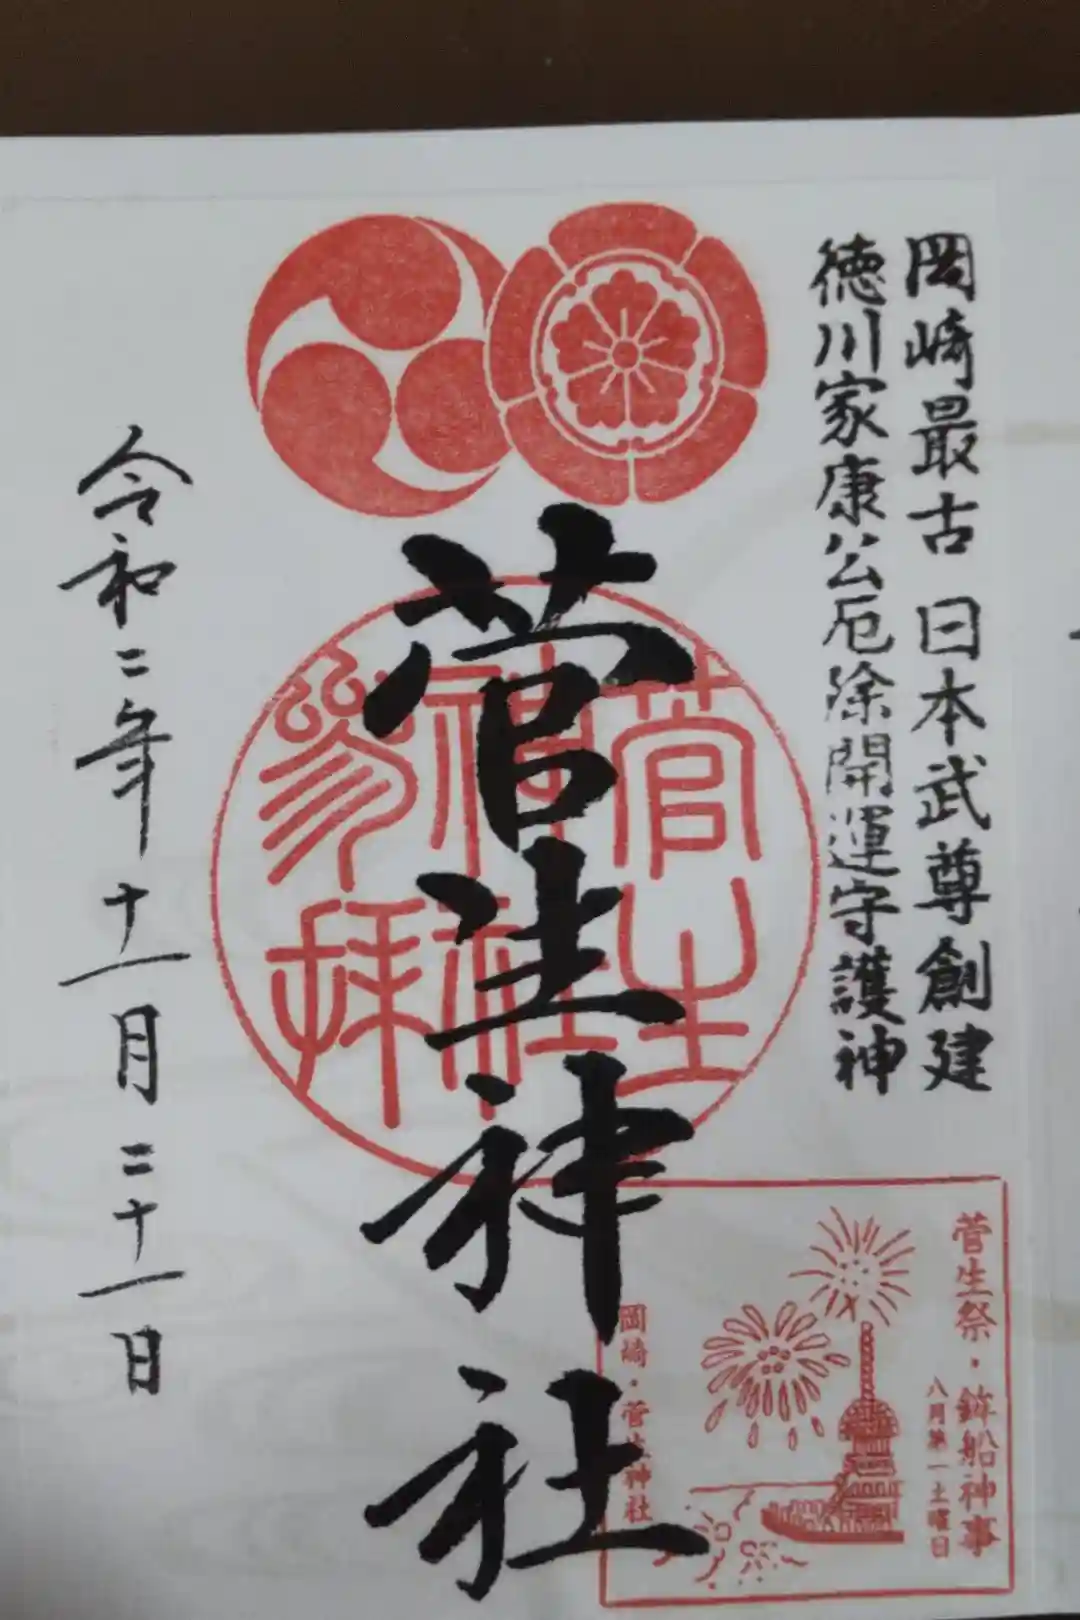 岡崎最古 日本武尊創建
徳川家康公厄除開運守護神
菅生神社
菅生
神社
参拝
令和二年十一月二十一日
菅生祭・鉾船神事
八月第一土曜日
岡崎・菅生神社